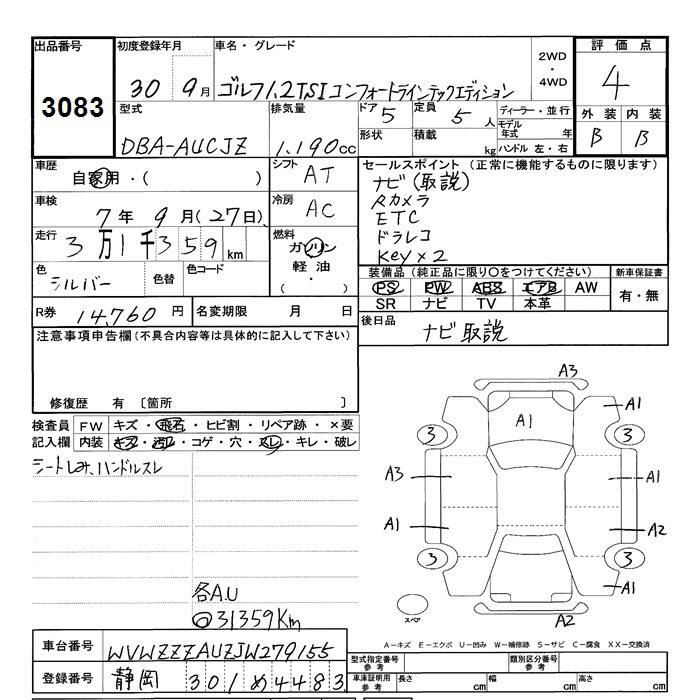 出品番号 初度登録年月 車名・グレード 2WD・4WD 評価点
3083 30 9月 ゴルフ1.2TSIコンフォートラインテックエディション 4
型式 排気量 ドア 5 定員 5人 ディーラー・並行 外装 内装
DBA-AUCJZ 1.190cc 形状 積載 kg モデル年式 年 B B
ハンドル 左・右
車歴 自家用・( ) シフト AT セールスポイント (正常に機能するものに限ります)
車検 7年9月(27日) 冷房 AC ナビ(取説)
Rカメラ
ETC
ドラレコ
Key×2
走行 3万1千359km 燃料 ガソリン・軽油・( )
色 シルバー 色替 色コード
装備品 (純正品に限り○をつけてください) 新車保証書
PS PW ABS エアB AW 有・無
SR ナビ TV 本革
R券 14,760円 名変期限 月 日 後日品 ナビ取説
注意事項申告欄(不具合内容等は具体的に記入して下さい)
修復歴 有 〔箇所 〕
検査員記入欄 FW キズ・飛石・ヒビ割・リペア跡・×要
内装 キズ・汚レ・コゲ・穴・スレ・キレ・破レ
シートしみ、ハンドルスレ
各A.U
◎31359Km
A3
A1 A1
3 3
A3 A1
A1 A2
3 3
A1
スペア A2
A-キズ E-エクボ U-凹み W-補修跡 S-サビ C-腐食 XX-交換済
車台番号 WVWZZZAUZJW279155 型式指定番号 参考 類別区分番号 参考
登録番号 静岡 301 め 4483 車庫証明用 参考 長さ cm 幅 cm 高さ cm